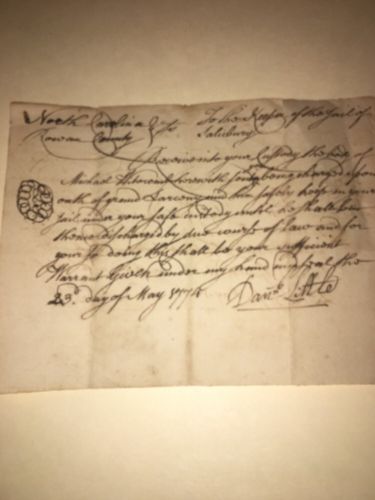 North Carolina } Ss. To the Keeper of the Jail of
Rowan County Salisbury
Receive into your Custody the body of
Michael herewith sent being charged upon
oath of grand Larceny and him safely keep in your
Jail under your safe custody until he shall be
thence discharged by due course of Law and for
your so doing this shall be your sufficient
Warrant Given under my hand and Seal this
23d. day of May 1774 Danl. Little